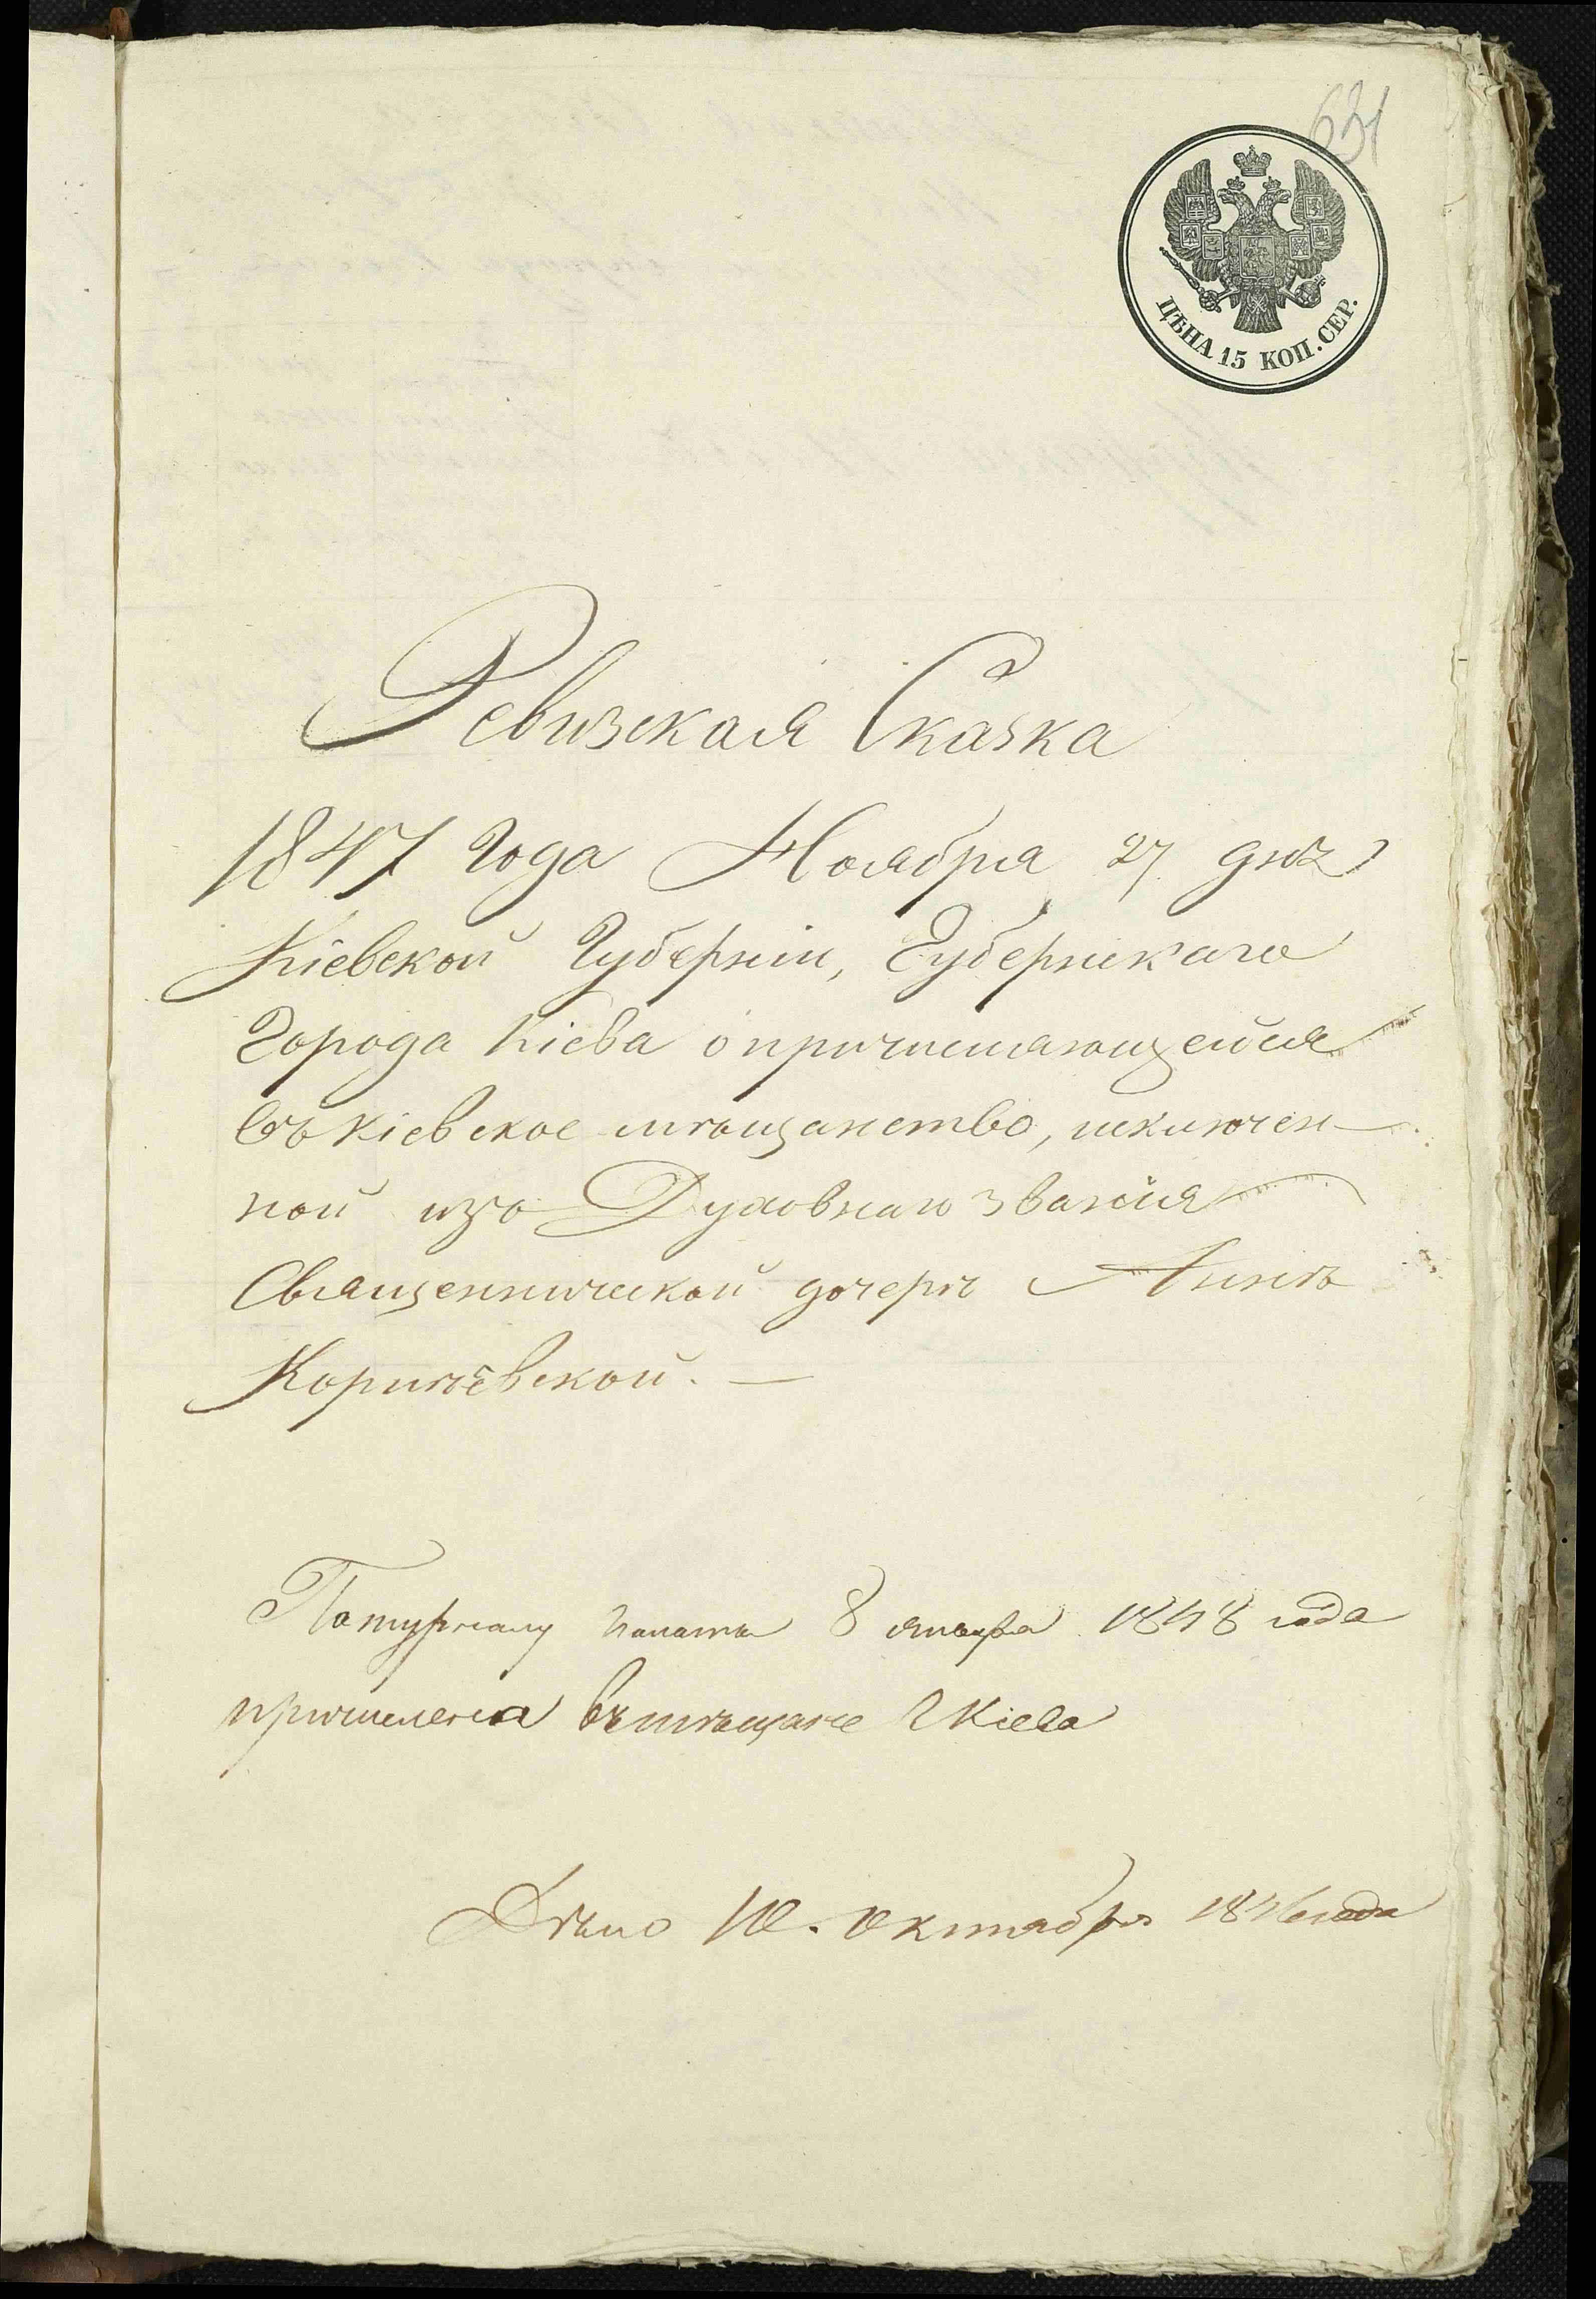 631
ЦѢНА 15 КОП. СЕР.
Ревизская Сказка
1847 Года Ноября 27 дня
Кіевской Губерніи, Губернскаго
Города Кіева о причисляющейся
въ Кіевское мѣщанство, исключен-
ной изъ Духовнаго званія
Священнической дочери Аннѣ
Коричевской. —
По журналу палаты 8 января 1848 года
причислена въ мѣщане г Кіева
Дѣло 10. октября 1846 года